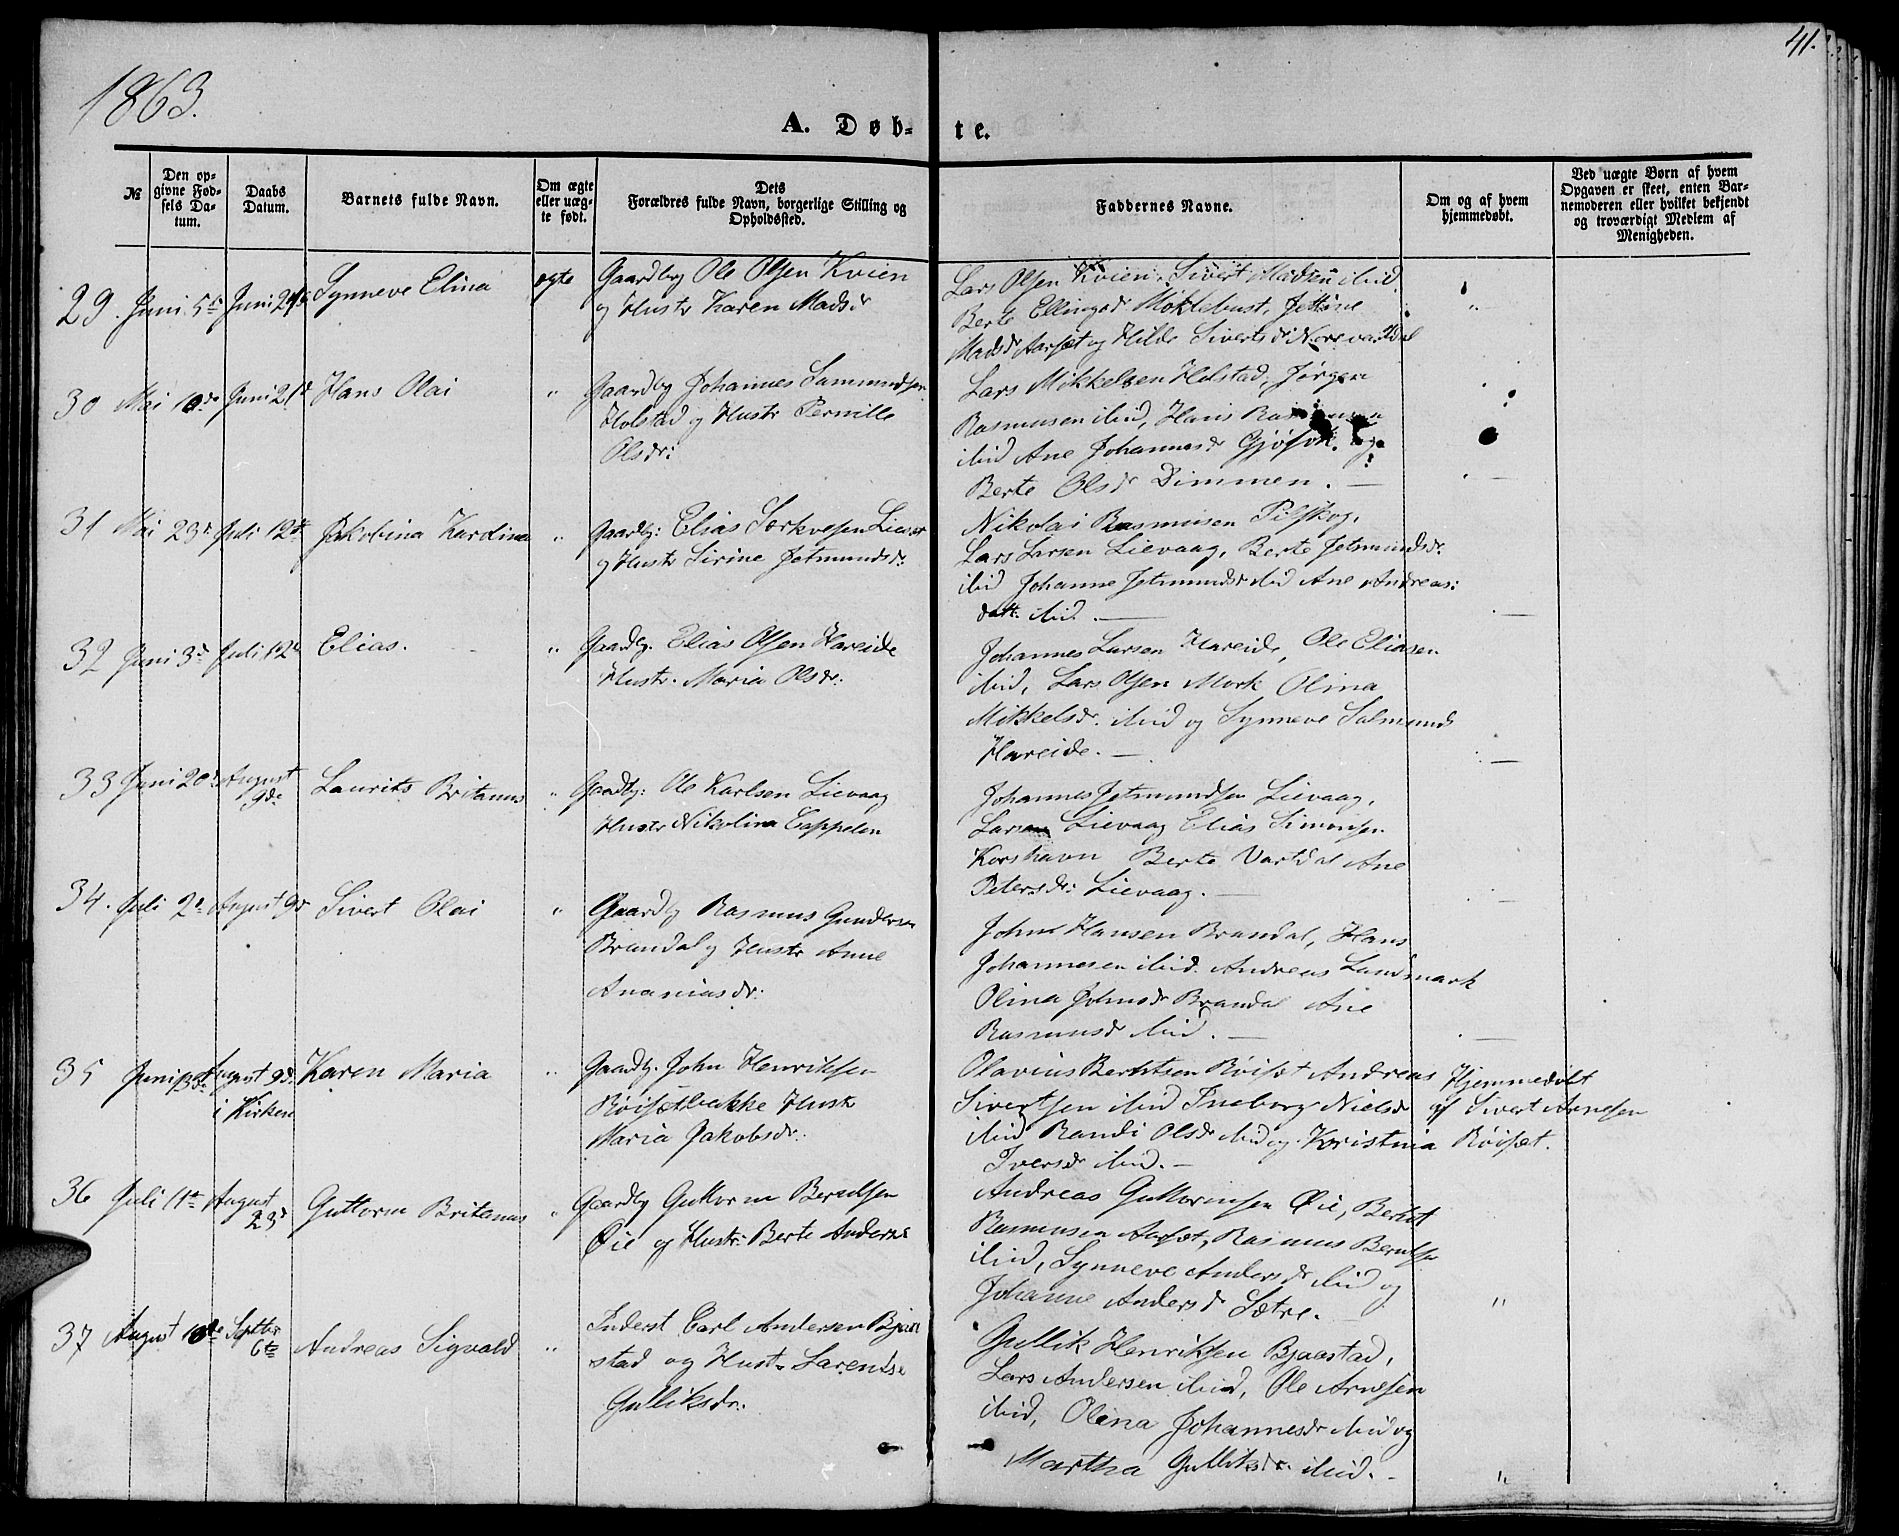 41.
1863.
A. Døb- te.
№
Den op-
givne Fød-
sels Da-
tum.
Daabs
Datum.
Barnets fulde Navn.
Om ægte
eller uæg-
te født.
Dets
Forældres fulde Navn, borgerlige Stilling og
Opholdssted.
Faddernes Navne.
Om og af hvem
hjemmedøbt.
Ved uægte Børn af hvem
Opgaven er skeet, enten Bar-
nemoderen eller hvilket bekjendt
og troværdigt Medlem af
Menigheden.
29. Juni 5te Juni 21de Synneve Elina ægte
Gaardbr Ole Olsen Kvien
og Hustr Karen Madsdr
Lars Olsen Kvien, Sivert Madsen ibid.
Berte Ellingsdr Moklebust,
Madsdr Aarset og Hilde Sivertsdr Nore vartdal
30 Mai 10de Juni 21de Hans Olai "
Gaardbr Johannes Sammundsen
Holstad og Hustr Pernille
Olsdr:
Lars Mikkelsen Holstad, Jørgen
Rasmusen ibid, Hans
ibid Ane Johannesdr og
Berte Olsdr Dimmen. —
31 Mai 23de Juli 12te Jakobina Kardine "
Gaardbr: Elias
og Hustr Sirine Jetmundsdr:
Nikolai Rasmusen Pilskog,
Lars Larsen Lievaag, Berte Jetmundsdr.
ibid Johanne Jetmundsdr ibid Ane Andreas:
datt. ibid. —
32 Juni 3de Juli 12te Elias. "
Gaardbr. Elias Olsen Hareide
Hustr. Maria Olsdr:
Johannes Larsen Hareide, Ole Eliasen
ibid, Lars Olsen Mork Olina
Mikkelsdr. ibid og Synneve Salmunds
Hareide. —
33 Juni 20de August
9de
Laurits Britanus "
Gaardbr: Ole Karlsen Lievaag
Hustr Nikolina Cappelen
Johannes Jetmundsen Lievaag,
Lars Lievaag Elias Simonsen
Korshavn Berte Vartdal Ane
Petersdr: Lievaag. —
34. Juli 2den August 9de Sivert Olai "
Gaardbr Rasmus Gundersen
Brandal og Hustr Anne
Ananiasdr:
John Hansen Brandal, Hans
Johannesen ibid. Andreas Landmark
Olina Johnsdr Brandal Ane
Rasmusdr ibid. —
35 Juni August 9de
i Kirken
Karen Maria "
Gaardbr. John Henriksen
Röisetbakke Hustr
Maria Jakobsdr:
Olavius Berntsen Röiset Andreas
Sivertsen ibid Ineborg Nielsdr
ibid Randi Olsdr ibid og Kristina
Iversdr ibid. —
Hjemmedöbt
af Sivert Arnesen
Röiset.
36 Juli 11te August
23de
Guttorm Britanus "
Gaardbr Guttorm Berntsen
Øie og Hustr: Berte Andersdr
Andreas Guttormsen Øie, Berndt
Rasmusen Aarset, Rasmus Berntsen
ibid, Synneve Andersdr ibid og
Johanne Andersdr Sætre.
"
37 August 10de Septbr
6te
Andreas Sigvald "
Inderst Carl Andersen Bjaa
stad og Hustr Larentse
Gulliksdr:
Gullik Henriksen Bjaastad,
Lars Andersen ibid, Ole Arnesen
ibid, Olina Johannesdr ibid og
Martha Gulliksdr. ibid. —
"